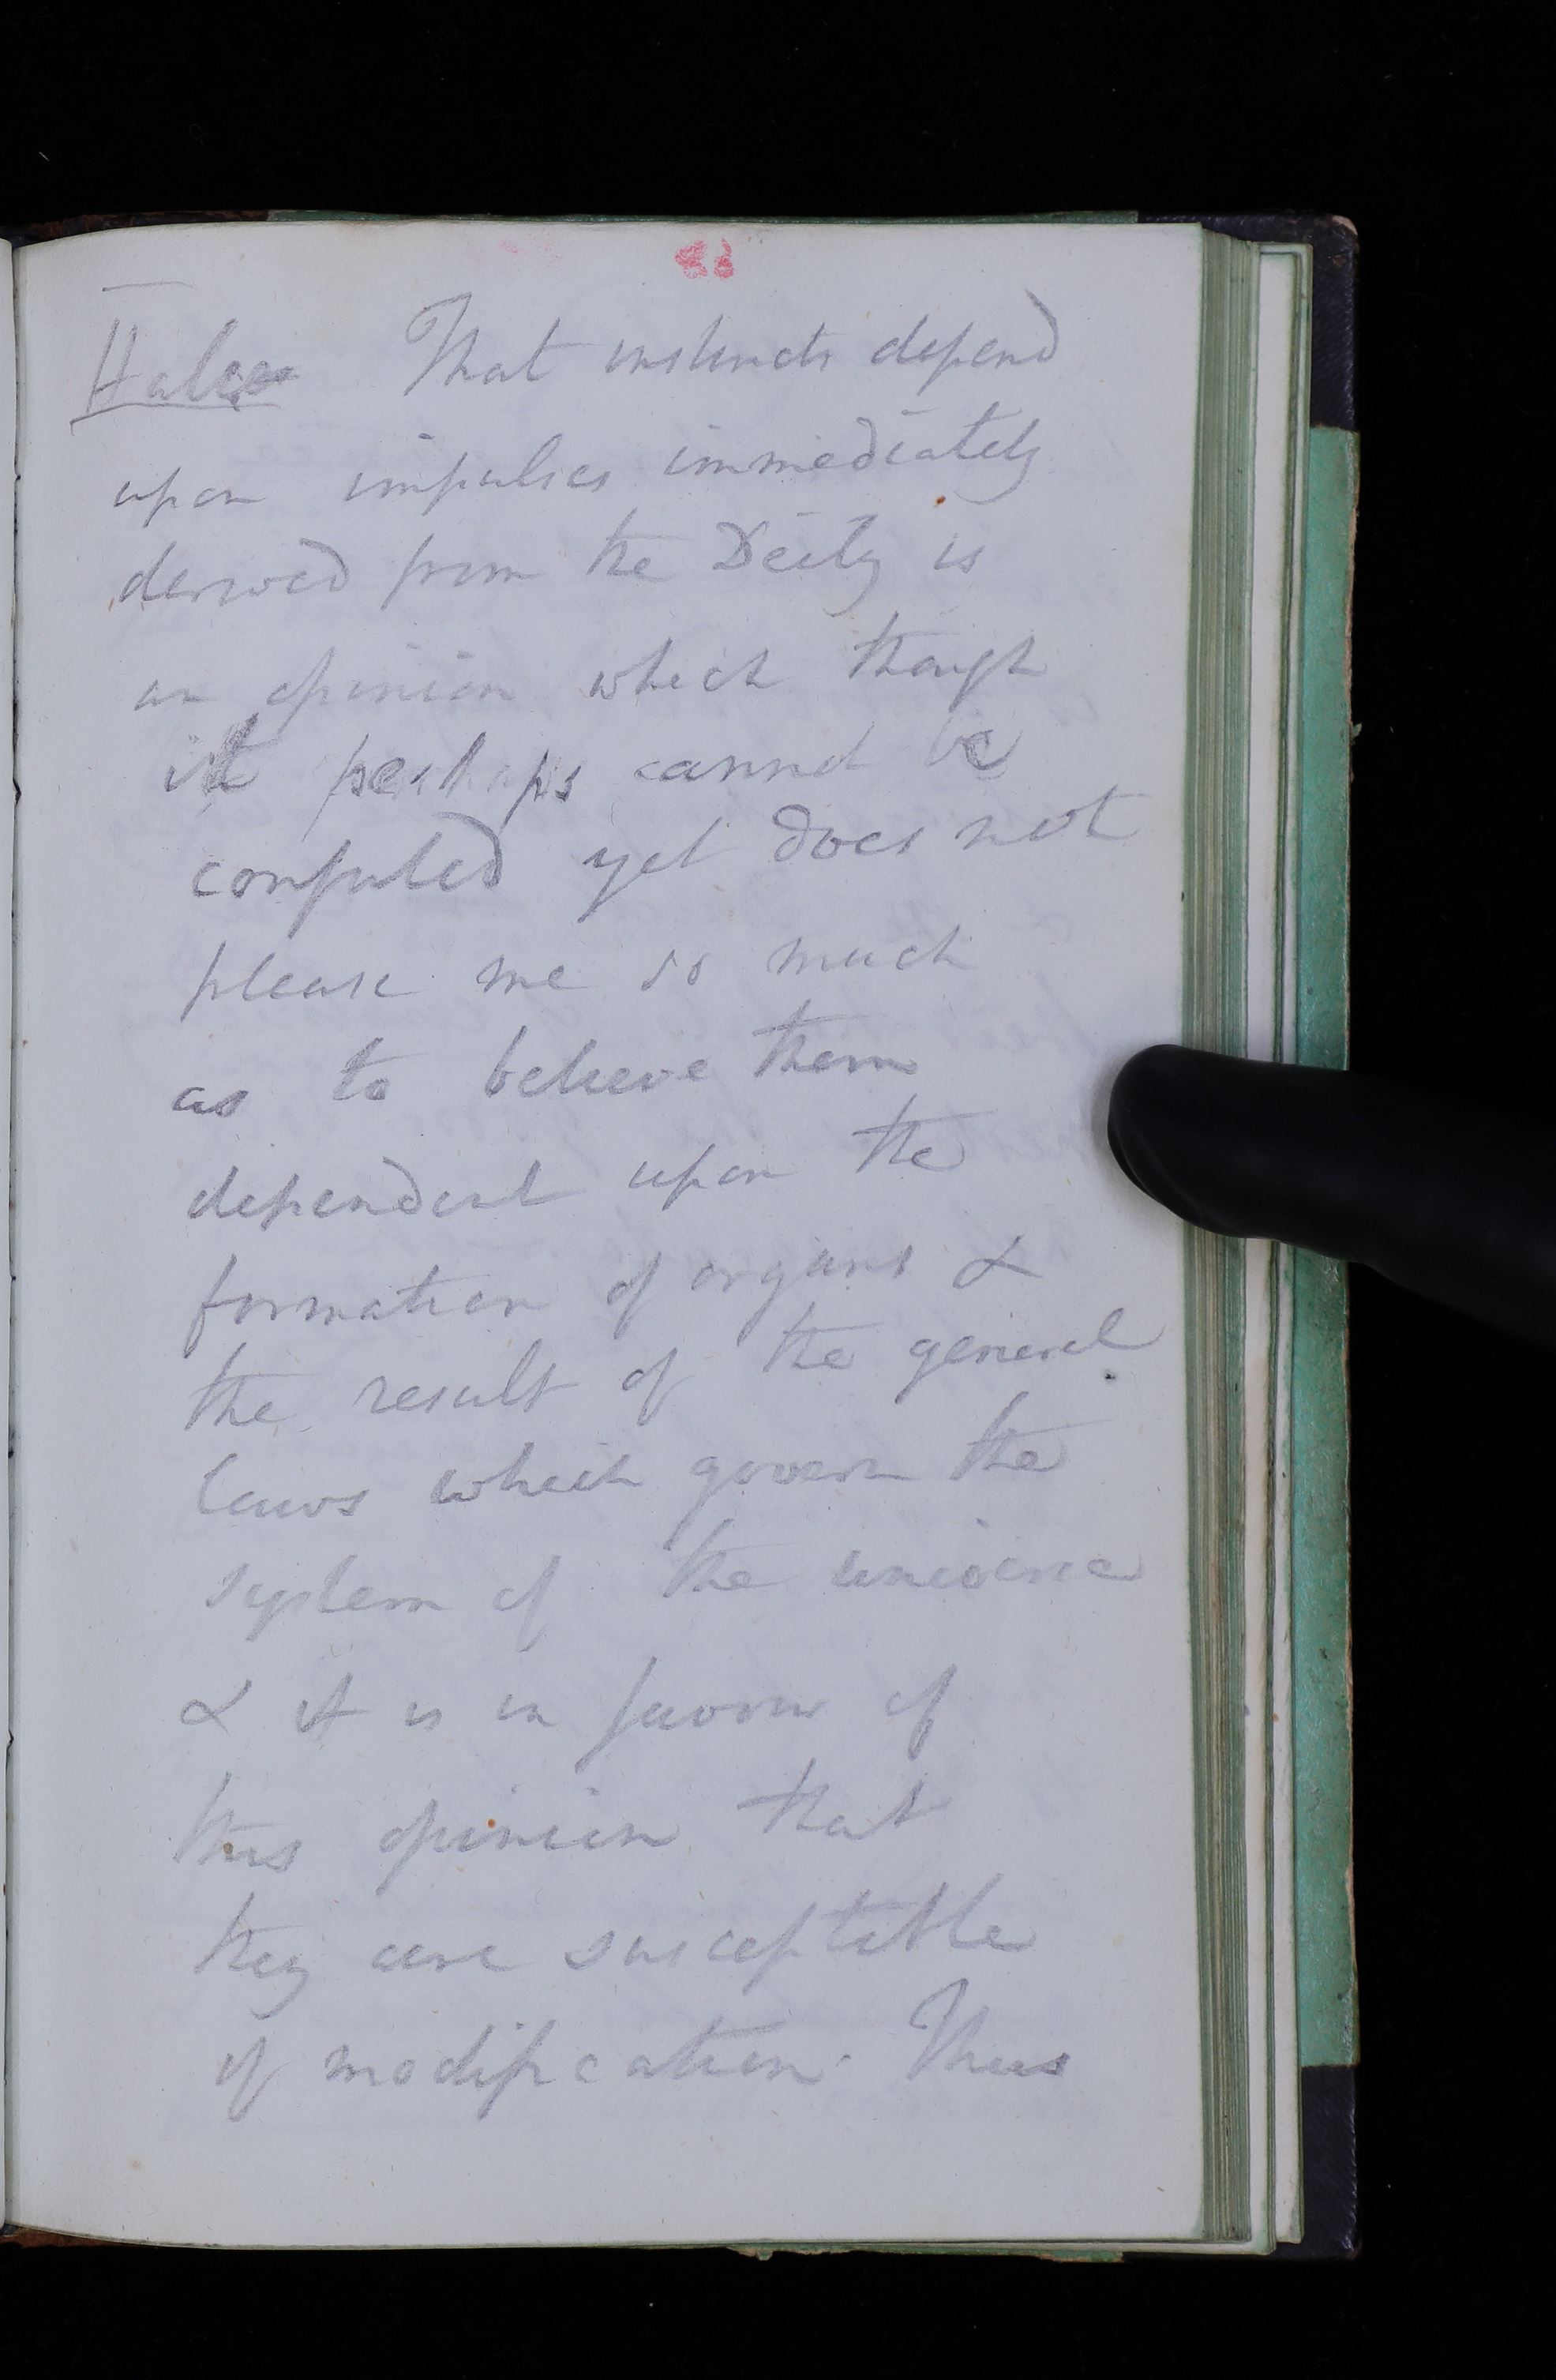 Halss That instincts depend
upon impulses immediately
derived from the Deity is
an opinion which though
it perhaps cannot be
confuted yet does not
please me so much
as to believe them
dependent upon the
formation of organs &
the result of the general
laws which govern the
system of the universe
& it is in favour of
this opinion that
they are susceptible
of modification. Thus